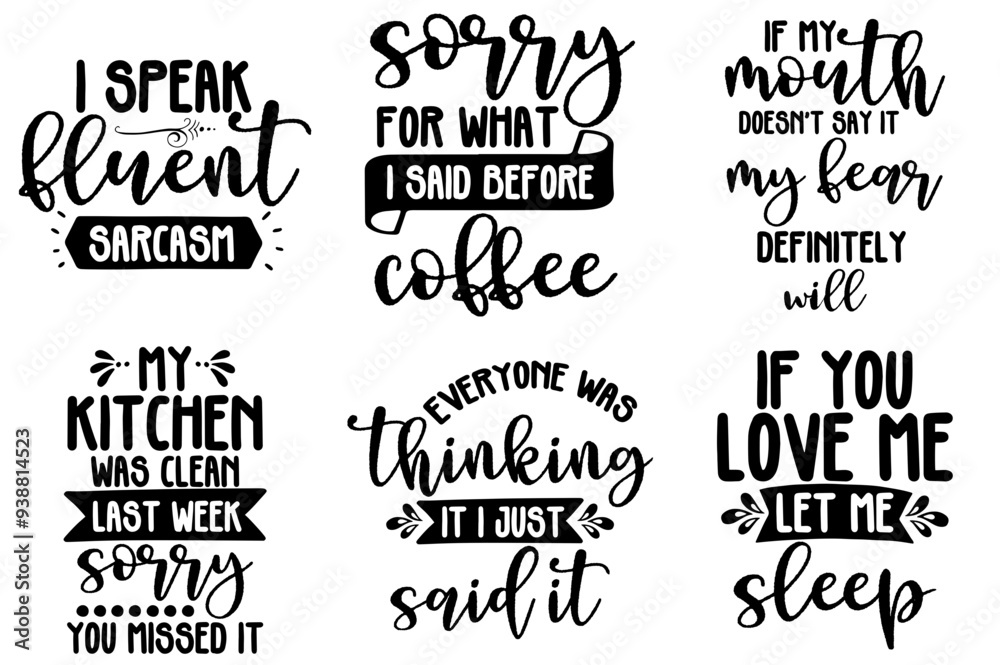 I SPEAK
fluent
SARCASM
sorry
FOR WHAT
I SAID BEFORE
coffee
IF MY
mouth
DOESN'T SAY IT
my fear
DEFINITELY
will
MY
KITCHEN
WAS CLEAN
LAST WEEK
sorry
YOU MISSED IT
EVERYONE WAS
thinking
IT I JUST
said it
IF YOU
LOVE ME
LET ME
sleep
Adobe Stock | #938814523